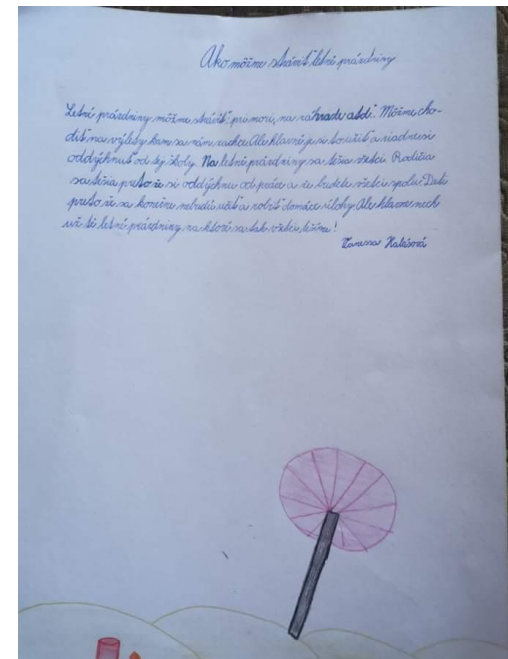 Ako môžme stráviť letné prázdniny
Letné prázdniny môžme stráviť: pri mori, na záhrade atď. Môžme cho-
diť na výlety kam sa nám zachce. Ale hlavné je si to užiť a riadne si
oddýchnuť od tej školy. Na letné prázdniny sa tešia všetci. Rodičia
sa tešia preto že si oddýchnu od práce a že budete všetci spolu. Deti
preto že sa konečne nebudú učiť a robiť domáce úlohy. Ale hlavne nech
už sú letné prázdniny na ktoré sa tak všetci tešíme!
Vanessa